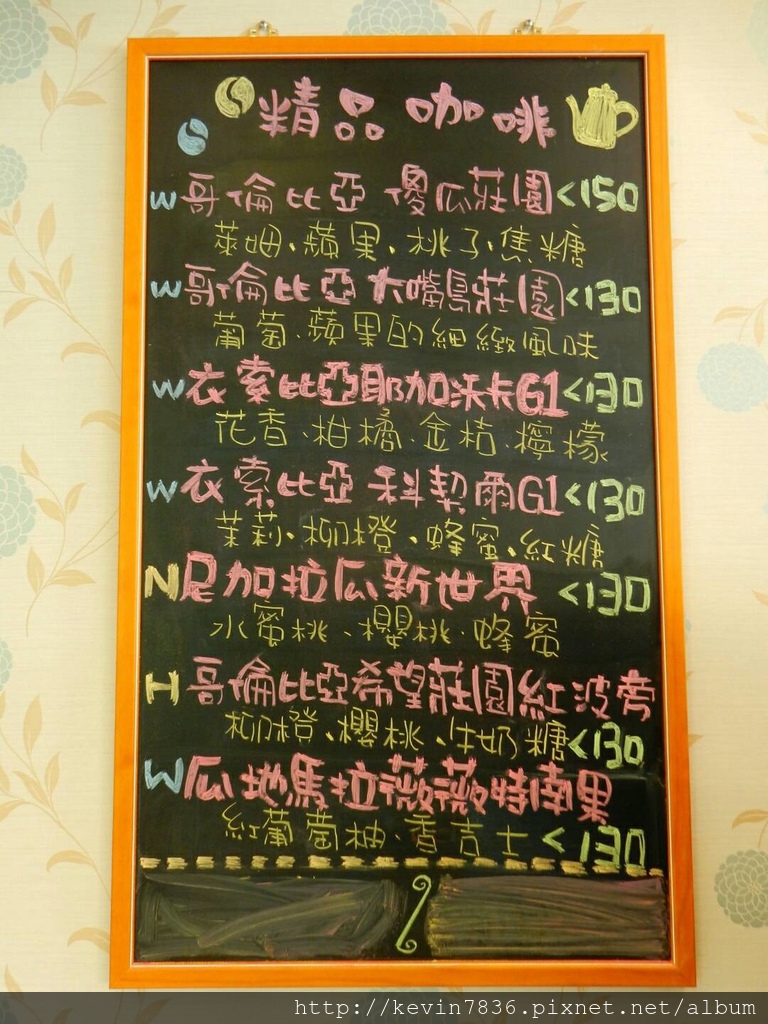 精品 咖啡
W哥倫比亞 傻瓜莊園<150
萊姆、蘋果、桃子、焦糖
W哥倫比亞大嘴鳥莊園<130
葡萄、蘋果的細緻風味
W衣索比亞耶加沃卡G1<130
花香、柑橘、金桔、檸檬
W衣索比亞 科契爾G1<130
茉莉、柳橙、蜂蜜、紅糖
N尼加拉瓜新世界 <130
水蜜桃、櫻桃、蜂蜜
H哥倫比亞希望莊園紅波旁
柳橙、櫻桃、牛奶糖<130
W瓜地馬拉薇薇特南果
紅葡萄柚、香吉士 <130
http://kevin7836.pixnet.net/album